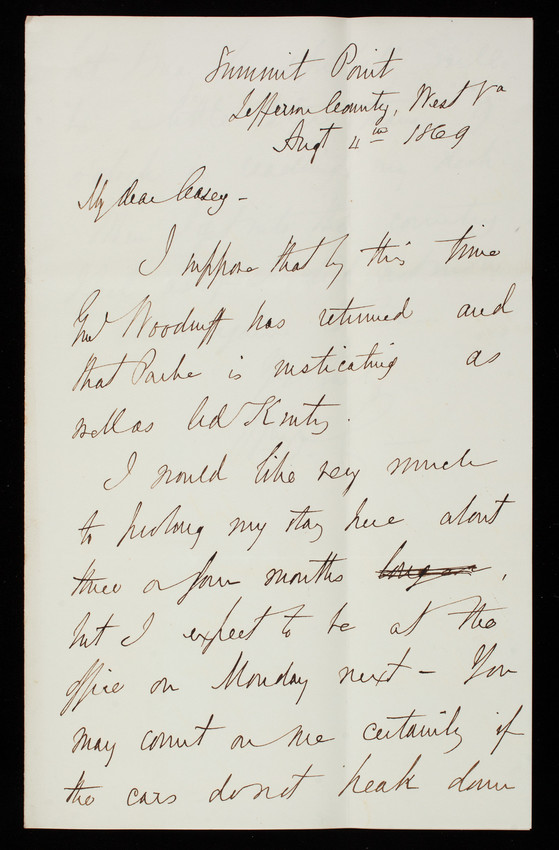 Summit Point
Jefferson County, West Va
Augt 4th 1869
My dear Casey -
I suppose that by this time
Genl Woodruff has returned and
that Parke is rusticating as
well as Col Kurtz.
I would like very much
to prolong my stay here about
three or four months longer,
but I expect to be at the
office on Monday next - You
may count on me certainly if
the cars do not break down